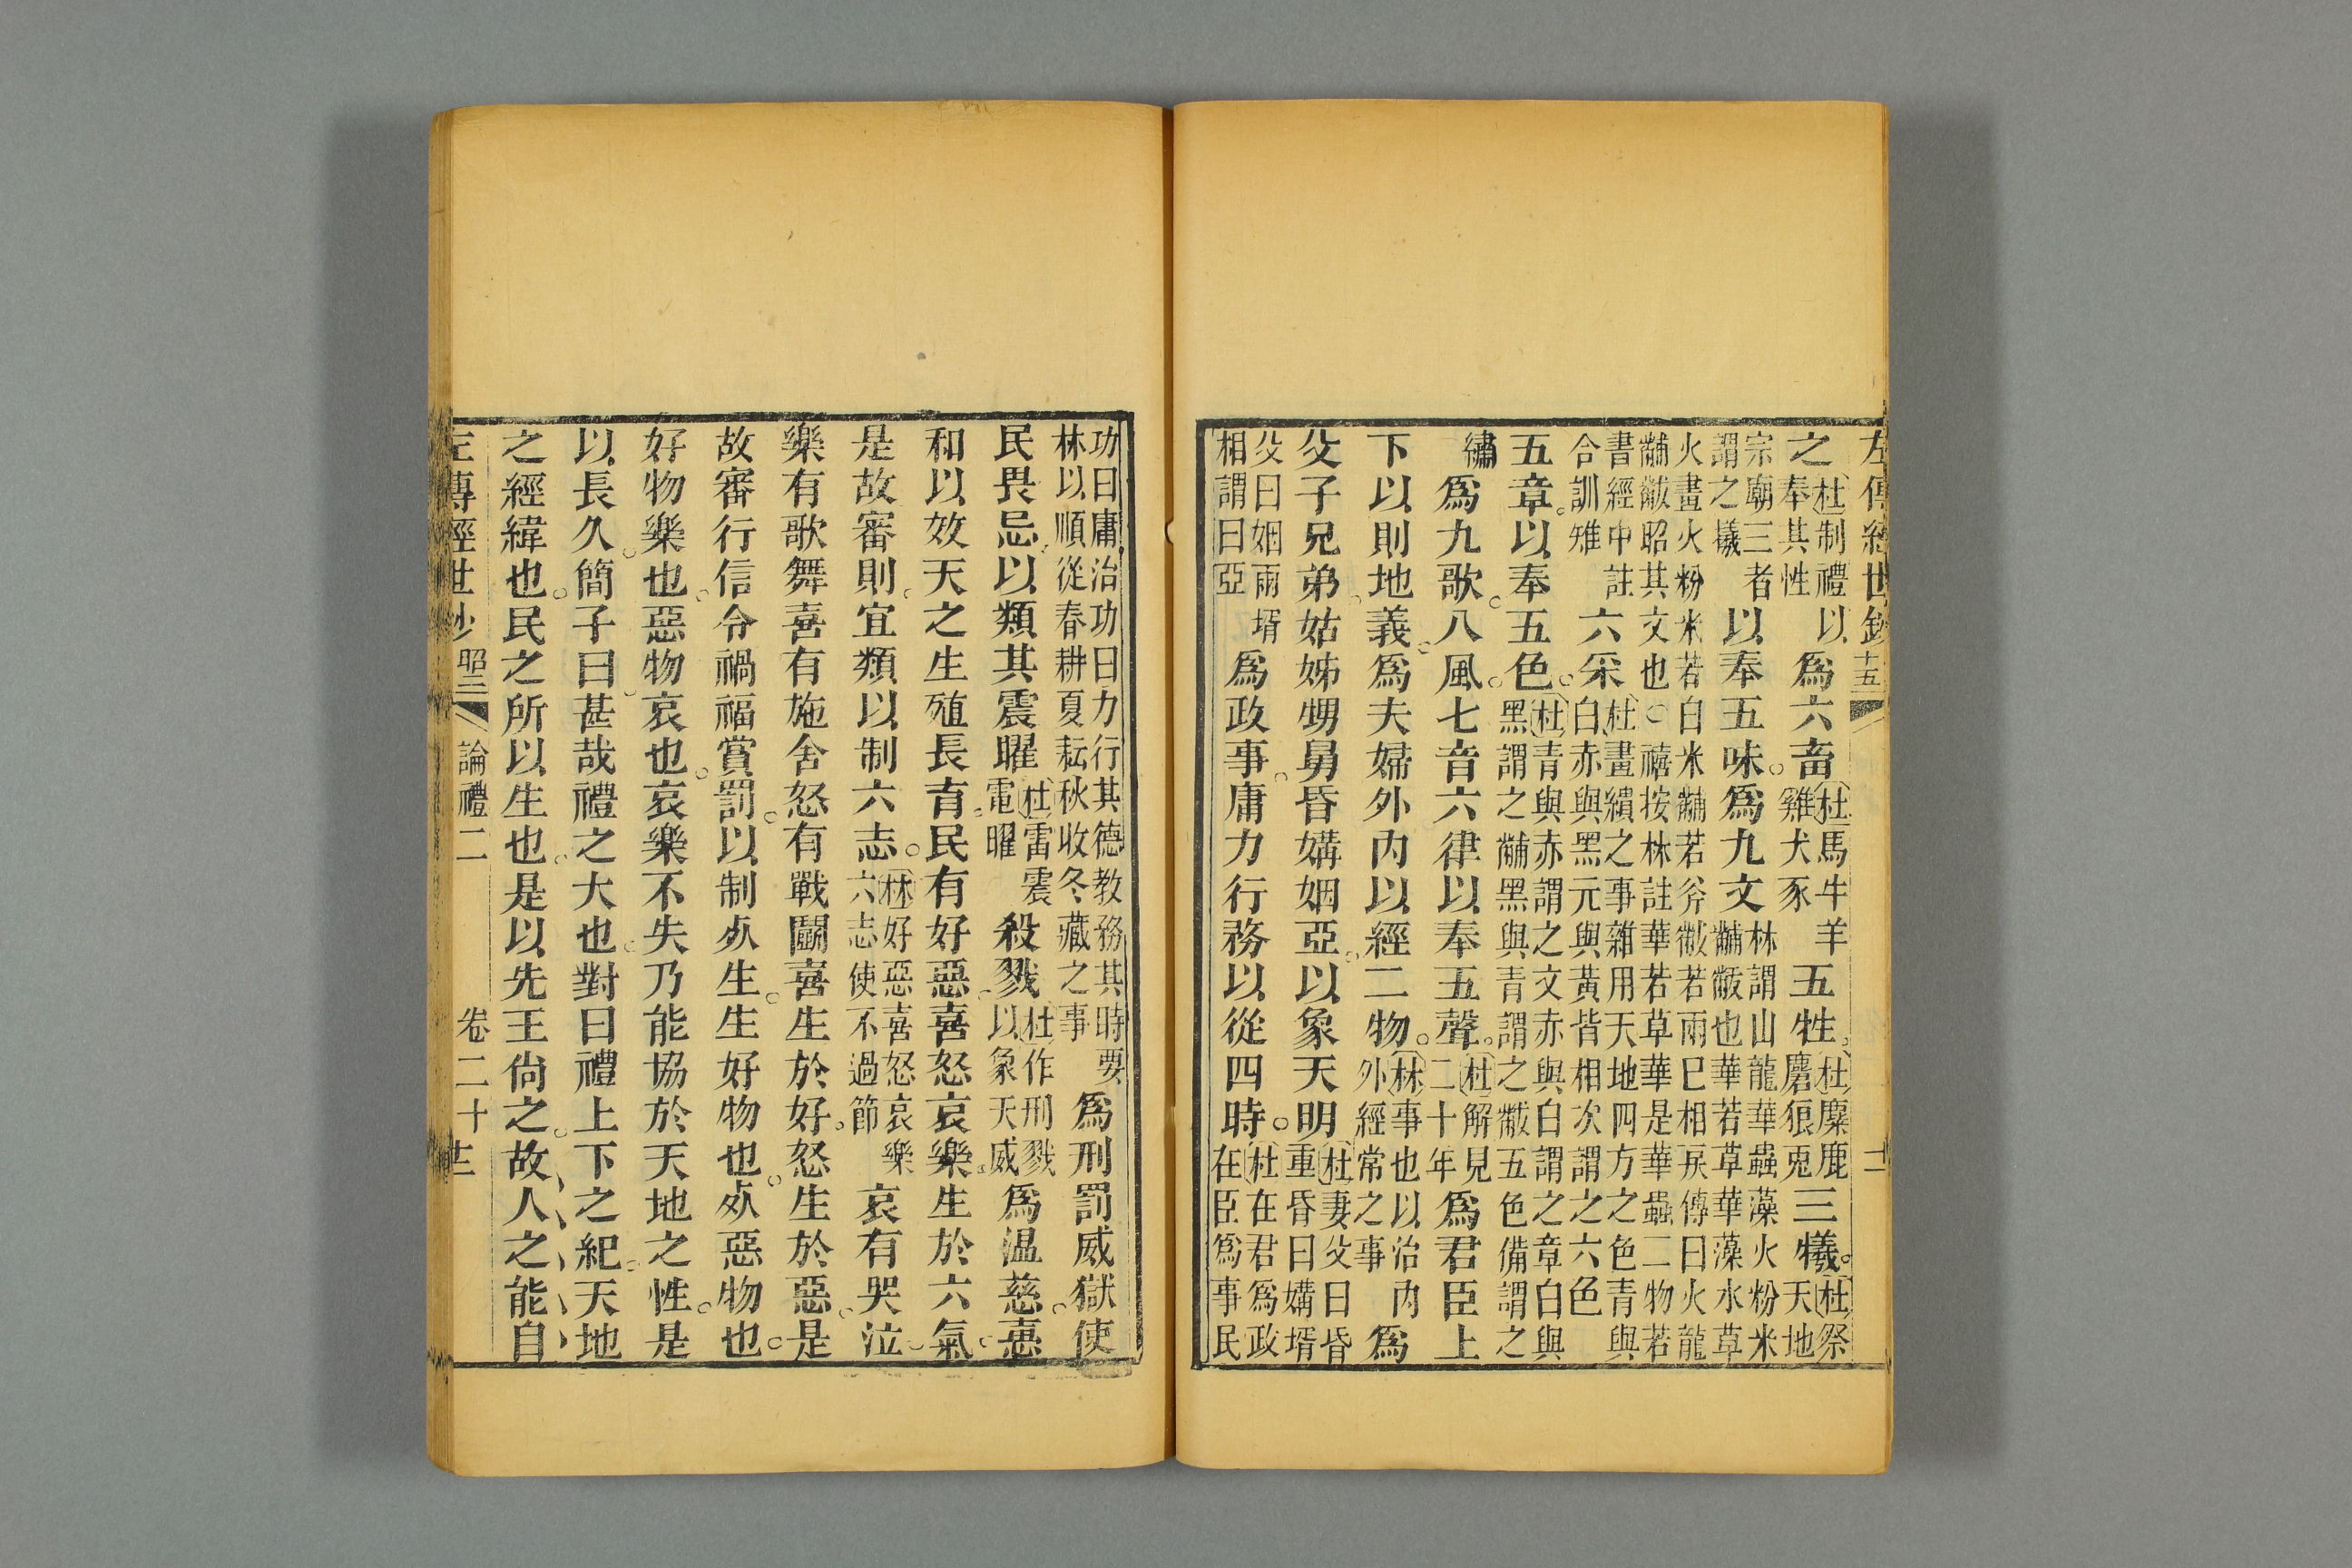 左傳經世鈔 十五 二
之杜制禮以奉其性爲六畜杜馬牛羊雞犬豕五牲杜麋鹿麏狼兎三犧杜祭天地
宗廟三者謂之犧以奉五味爲九文林謂山龍華蟲藻火粉米黼黻也華若草華藻水草
火畫火粉米若白米黼若斧黻若兩巳相戾傳曰火龍黼黻昭其文也○禧按林註華若草華是華蟲二物若
書經中註合訓雉六采杜畫繢之事雜用天地四方之色青與白赤與黑元與黃皆相次謂之六色
五章以奉五色杜青與赤謂之文赤與白謂之章白與黑謂之黼黑與青謂之黻五色備謂之
繡爲九歌八風七音六律以奉五聲杜解見二十年爲君臣上
下以則地義爲夫婦外內以經二物林事也以治內外經常之事爲
父子兄弟姑姊甥舅昏媾姻亞以象天明杜妻父曰昏重昏曰媾壻
父曰姻兩壻相謂曰亞爲政事庸力行務以從四時杜在君爲政在臣爲事民
功曰庸治功曰力行其德教務其時要林以順從春耕夏耘秋收冬藏之事爲刑罰威獄使
民畏忌以類其震曜杜雷震電曜殺戮杜作刑戮以象天威爲温慈惠
和以效天之生殖長育民有好惡喜怒哀樂生於六氣
是故審則宜類以制六志林好惡喜怒哀樂六志使不過節哀有哭泣
樂有歌舞喜有施舍怒有戰鬭喜生於好怒生於惡是
故審行信令禍福賞罰以制死生生好物也死惡物也
好物樂也惡物哀也哀樂不失乃能協於天地之性是
以長久簡子曰甚哉禮之大也對曰禮上下之紀天地
之經緯也民之所以生也是以先王尙之故人之能自
左傳經世鈔 昭三 論禮二 卷二十